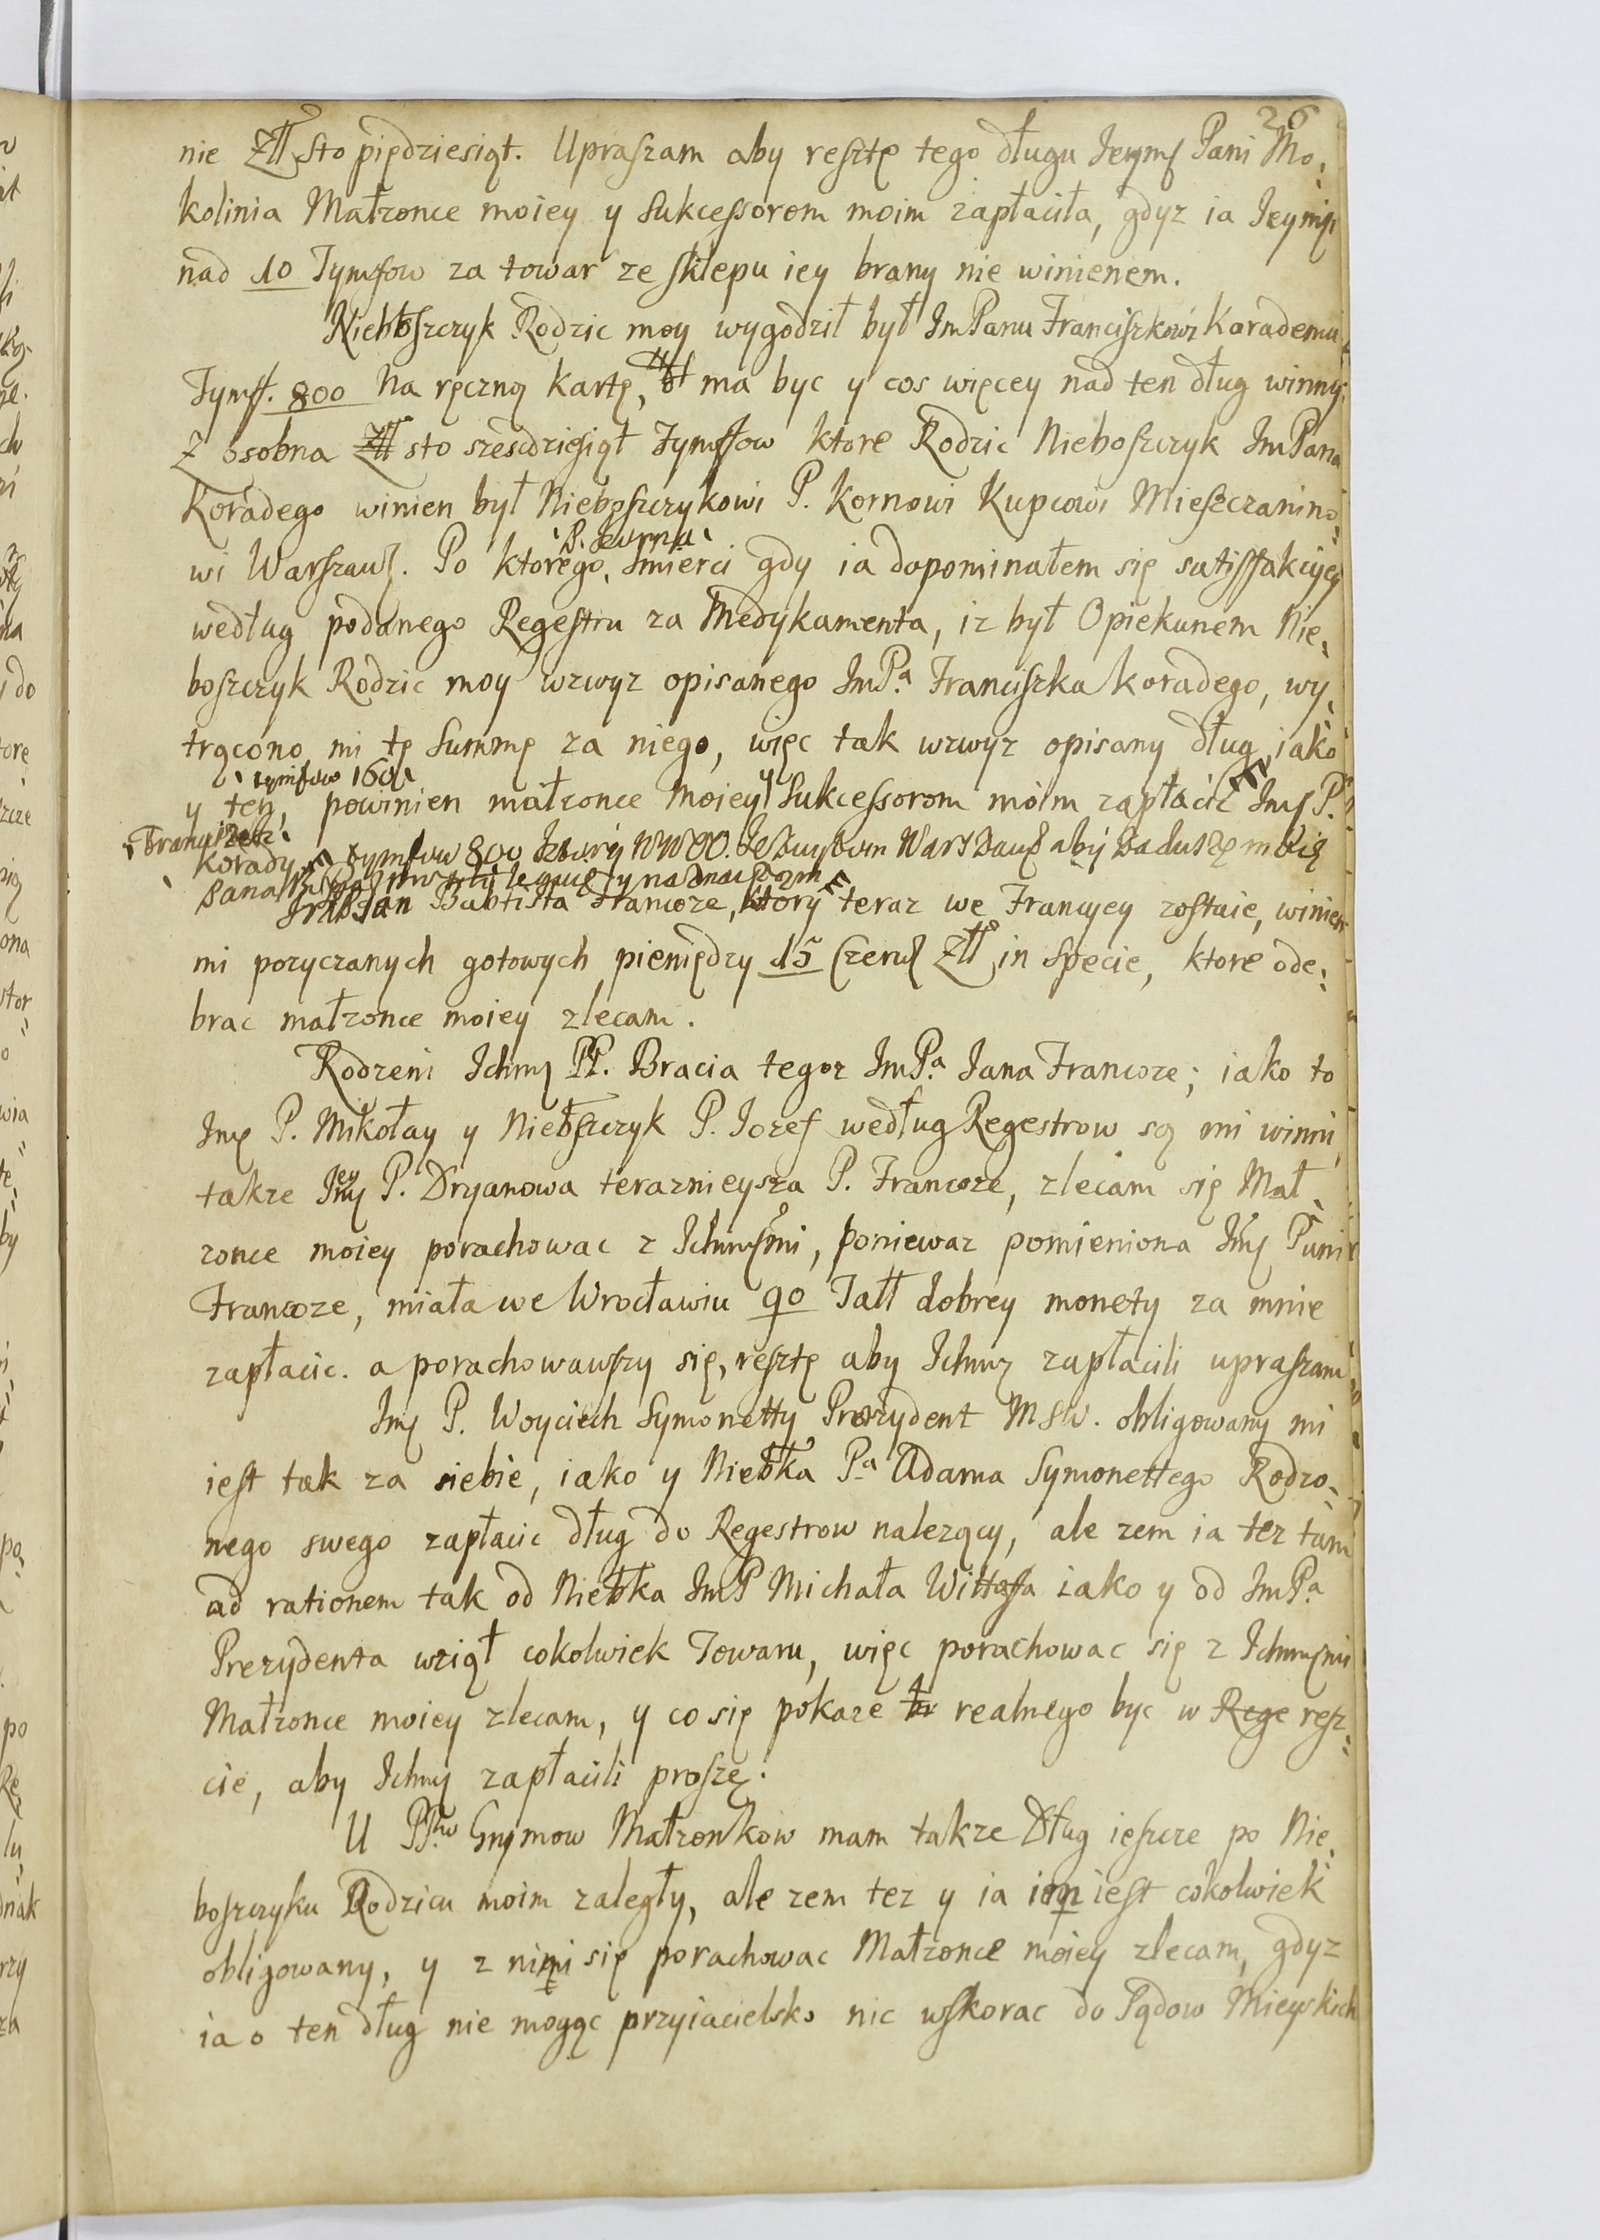 26
nie Złł sto pięDziesiąt. Upraszam aby resztę tego Długu Ieymś Pani Mo:
kolinia Małzonce moiey y Sukcessorom moim zapłaciła, gdyz ia Ieymś
nad 10 Tymfow za towar ze sklepu iey brany nie winienem.
Nieboszczyk Rodzic moy wygodził był ImPanu Franciszkowi Korademu
Tymff. 800 Na ręczną kartę, ma byc y cos więcey nad ten dług winny.
Z osobna Złł sto szescdziesiąt Tymffow ktore Rodzic Nieboszczyk ImPana
Koradego winien był Nieboszczykowi P. Kornowi Kupcowi Mieszczanino:
wi Warszaws. Po ktorego, Smierci gdy ia dopominałem się satisffakcyey
według podanego Regestru za Medykamenta, iz był Opiekunem Nie:
boszczyk Rodzic moy wzwyz opisanego ImPa. Franciszka Koradego, wy:
trącono mi tę Summę za niego, więc tak wzwyz opisany dług, iako
tymfow 160
y ten, powinien małzonce Moiey y Sukcessorom moim zapłacic Imś P.
Franciszek
Korady tymfow 800 ktory WWOO. Jezuytom Warszaws aby za duszę moię
Pana
Jan Babtista Francoze, ktory teraz we Francyey zostaie, winien
mi pozyczanych gotowych pieniędzy 15 Czerw Złł in Specie, ktore ode:
brac małzonce moiey zlecam.
Rodzeni Ichmś PP. Bracia tegoz ImPa. Iana Francoze; iako to
Imś P. Mikołay y Niebszczyk P. Iozef według Regestrow są mi winni,
takze Ieymś P. Dryanowa teraznieysza P. Francoze, zlecam się Mał:
zonce moiey porachowac z Ichmśmi, poniewaz pomieniona Imś Pani
Francoze, miała we Wrocławiu 90 Tall dobrey monety za mnie
zapłacic. a porachowawszy się, resztę aby Ichmś zapłacili upraszam
Imś P. Woyciech Symonetty Prezydent MSW. obligowany mi
iest tak za siebie, iako y Niebka Pa Adama Symonettego Rodzo:
nego swego zapłacic dług do Regestrow nalezący, ale zem ia tez tam
ad rationem tak od Niebka ImP Michała Wittoffa iako y od ImPa
Prezydenta wziął cokolwiek Towaru, więc porachowac się z Ichmśmi
Małzonce moiey zlecam, y co się pokaze realnego byc w Rege resz:
cie, aby Ichmś zapłacili proszę.
U PPtw Grymow Małzonkow mam takze Dług ieszcze po Nie:
boszczyku Rodzicu moim zaległy, ale zem tez y ia im iest cokolwiek
obligowany, y z nimi się porachowac Małzonce moiey zlecam, gdyz
ia o ten dług nie mogąc przyiacielsko nic wskorac do Sądow Mieyskich